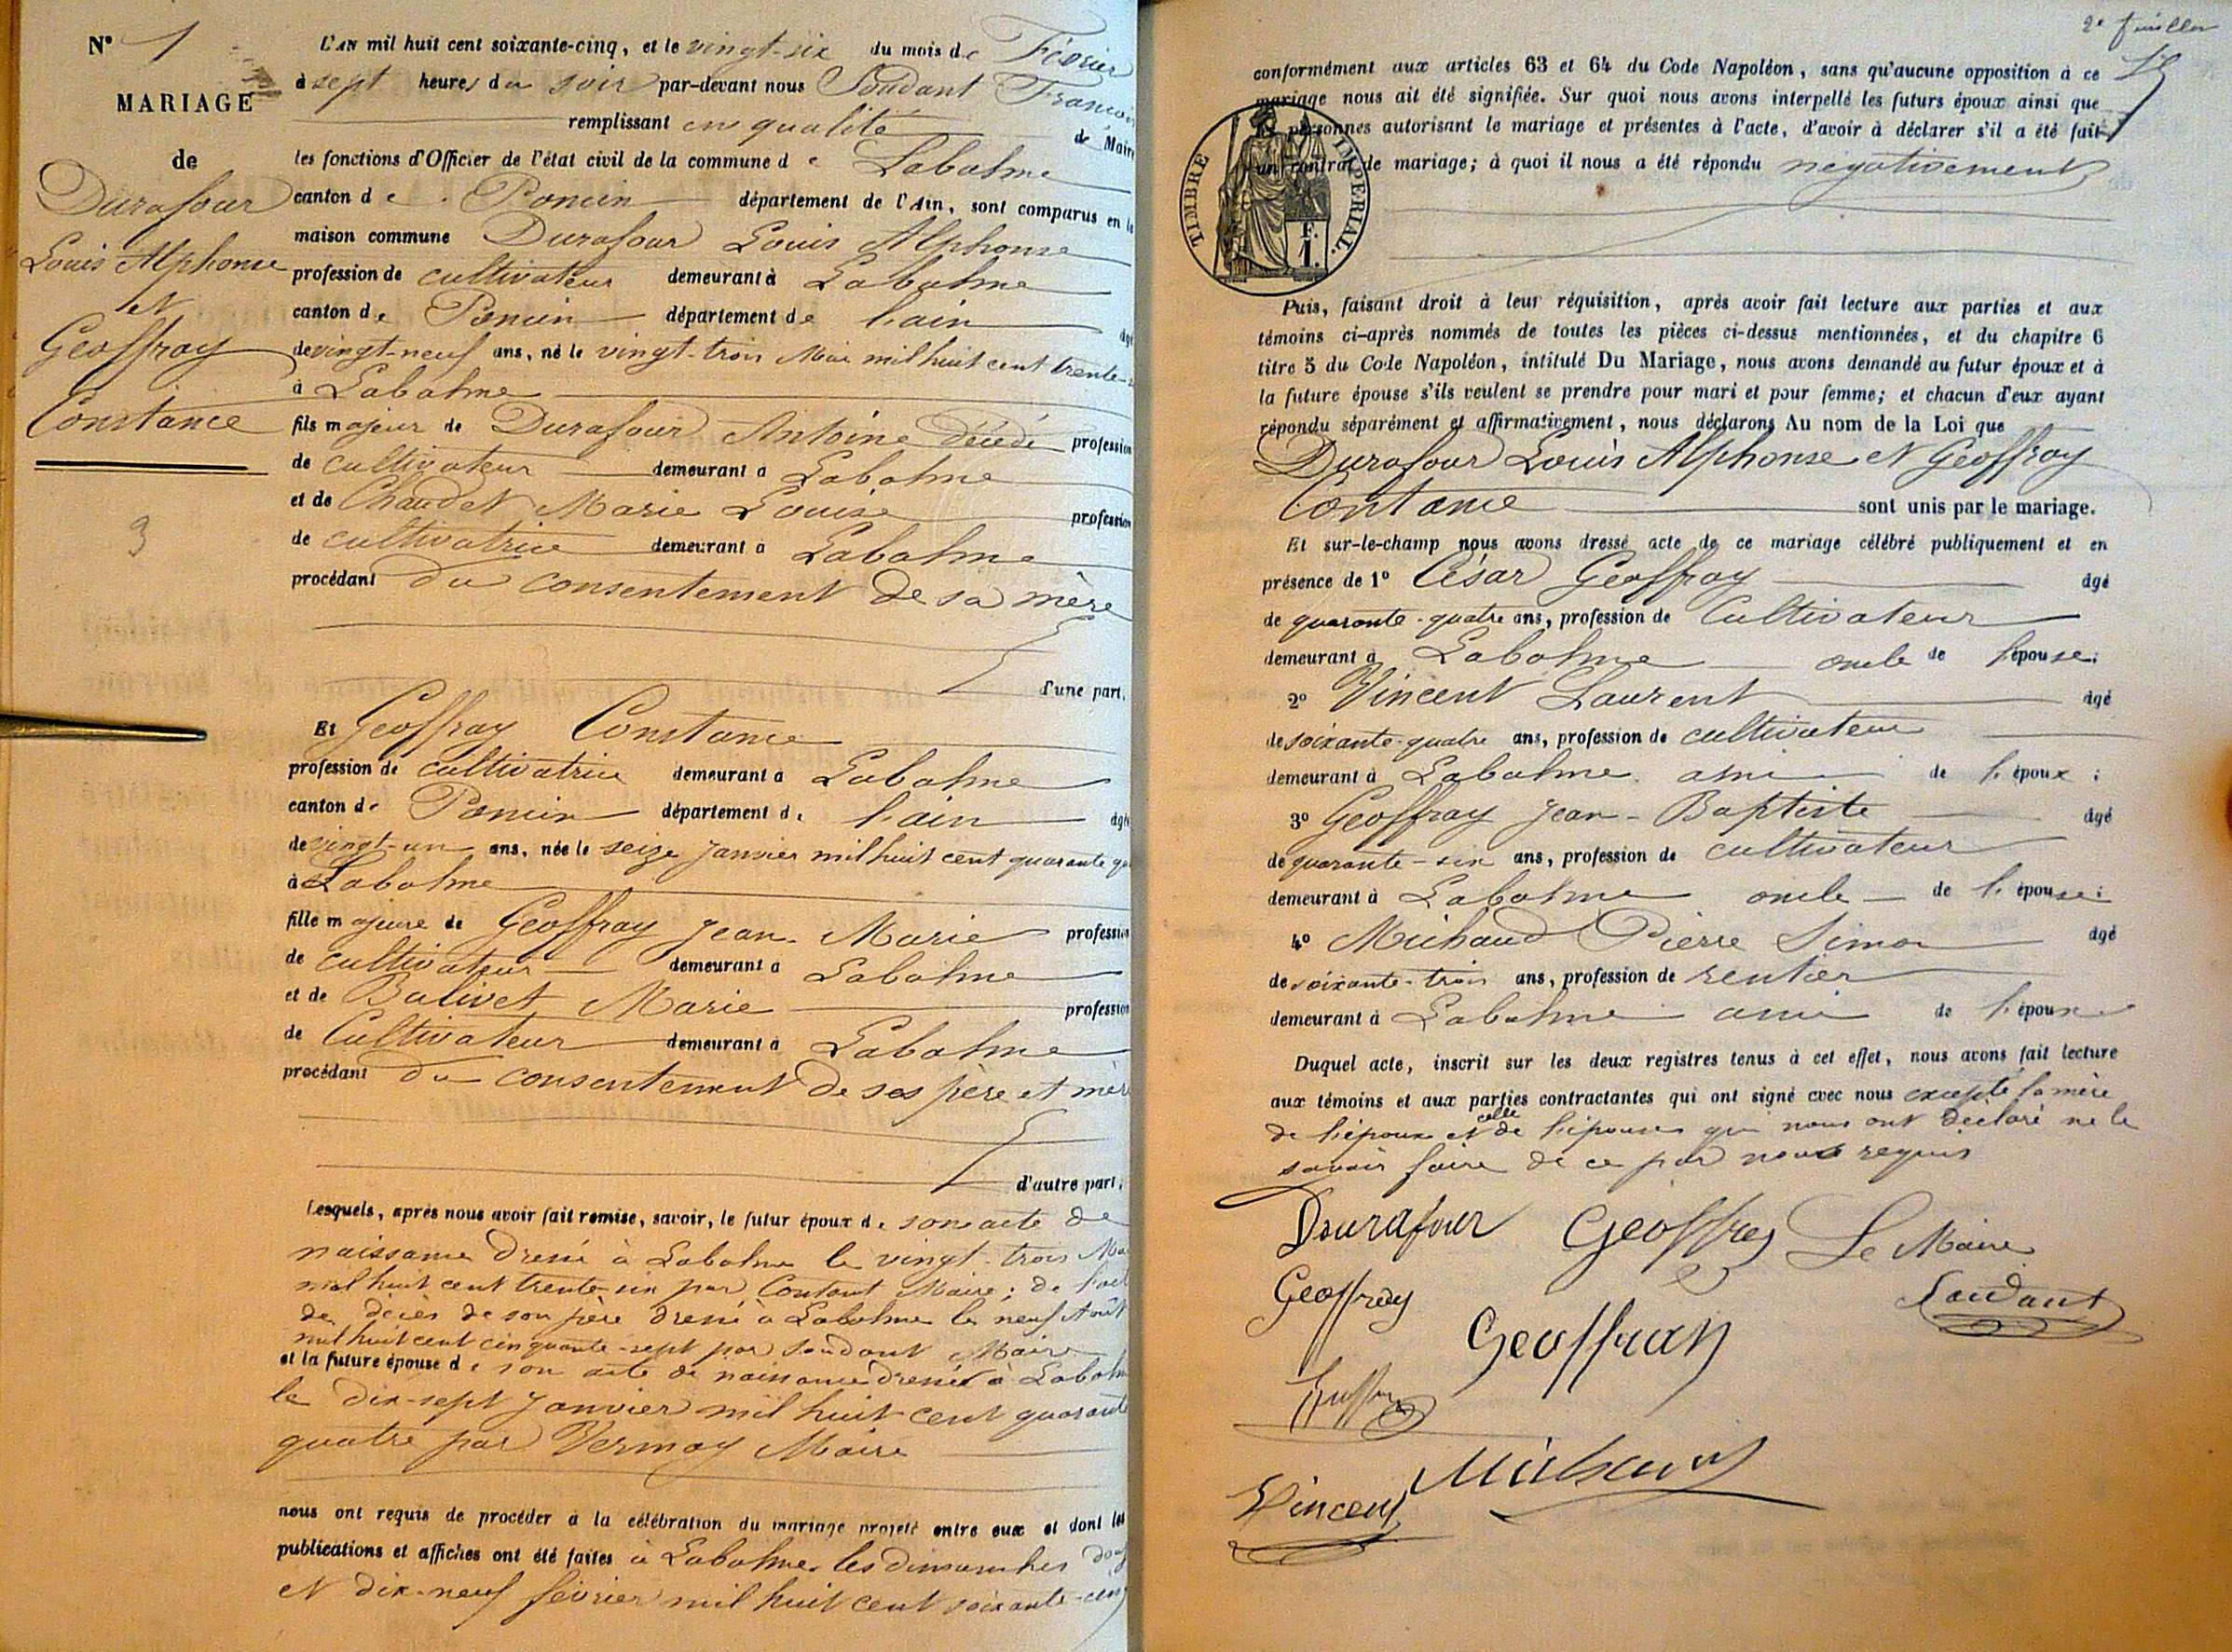 N° 1
MARIAGE
de
Durafour
Louis Alphonse
et
Geoffray
Constance
3
L'AN mil huit cent soixante-cinq, et le vingt-six du mois de Février
à sept heures du soir par-devant nous Soudant François
remplissant en qualité de Maire
les fonctions d'Officier de l'état civil de la commune de Labalme
canton de Poncin département de l'Ain, sont comparus en la
maison commune Durafour Louis Alphonse
profession de cultivateur demeurant à Labalme
canton de Poncin département de l'ain âgé
de vingt-neuf ans, né le vingt-trois Mai mil huit cent trente-
à Labalme
fils majeur de Durafour Antoine décédé profession
de cultivateur demeurant à Labalme
et de Chaudet Marie Louise profession
de cultivatrice demeurant à Labalme
procédant du consentement de sa mère
d'une part,
Et Geoffray Constance
profession de cultivatrice demeurant à Labalme
canton de Poncin département de l'ain âgée
de vingt-un ans, née le seize Janvier mil huit cent quarante
à Labalme
fille majeure de Geoffray Jean-Marie profession
de cultivateur demeurant à Labalme
et de Balivet Marie profession
de Cultivateur demeurant à Labalme
procédant du consentement de ses père et mère
d'autre part,
Lesquels, après nous avoir fait remise, savoir, le futur époux de son acte de
naissance dressé à Labalme le vingt-trois Mai
mil huit cent trente-six par Contant Maire; de l'acte
de décès de son père dressé à Labalme le neuf Août
mil huit cent cinquante-sept par Soudant Maire
et la future épouse de son acte de naissance dressé à Labalme
le dix-sept Janvier mil huit cent quarante
quatre par Vermay Maire
nous ont requis de procéder à la célébration du mariage projeté entre eux et dont les
publications et affiches ont été faites à Labalme les dimanches douze
et dix-neuf février mil huit cent soixante-cinq
2e feuillet
conformément aux articles 63 et 64 du Code Napoléon, sans qu'aucune opposition à ce
mariage nous ait été signifiée. Sur quoi nous avons interpellé les futurs époux ainsi que
les personnes autorisant le mariage et présentes à l'acte, d'avoir à déclarer s'il a été fait
un contrat de mariage; à quoi il nous a été répondu négativement
TIMBRE IMPÉRIAL.
1 F.
Puis, faisant droit à leur réquisition, après avoir fait lecture aux parties et aux
témoins ci-après nommés de toutes les pièces ci-dessus mentionnées, et du chapitre 6
titre 5 du Code Napoléon, intitulé Du Mariage, nous avons demandé au futur époux et à
la future épouse s'ils veulent se prendre pour mari et pour femme; et chacun d'eux ayant
répondu séparément et affirmativement, nous déclarons Au nom de la Loi que
Durafour Louis Alphonse et Geoffray
Contance sont unis par le mariage.
Et sur-le-champ nous avons dressé acte de ce mariage célébré publiquement et en
présence de 1° César Geoffray âgé
de quarante-quatre ans, profession de Cultivateur
demeurant à Labalme oncle de l'épouse;
2° Vincent Laurent âgé
de soixante-quatre ans, profession de cultivateur
demeurant à Labalme ami de l'époux;
3° Geoffray Jean-Baptiste âgé
de quarante-six ans, profession de cultivateur
demeurant à Labalme oncle de l'épouse;
4° Michaud Pierre Simon âgé
de soixante-trois ans, profession de rentier
demeurant à Labalme ami de l'époux
Duquel acte, inscrit sur les deux registres tenus à cet effet, nous avons fait lecture
aux témoins et aux parties contractantes qui ont signé avec nous excepté la mère
de l'époux et celle de l'épouse qui nous ont déclaré ne le
savoir faire de ce par nous requis
Dourafour Geoffrey Le Maire
Geoffrey Soudant
Geoffray
Vincent Michaud